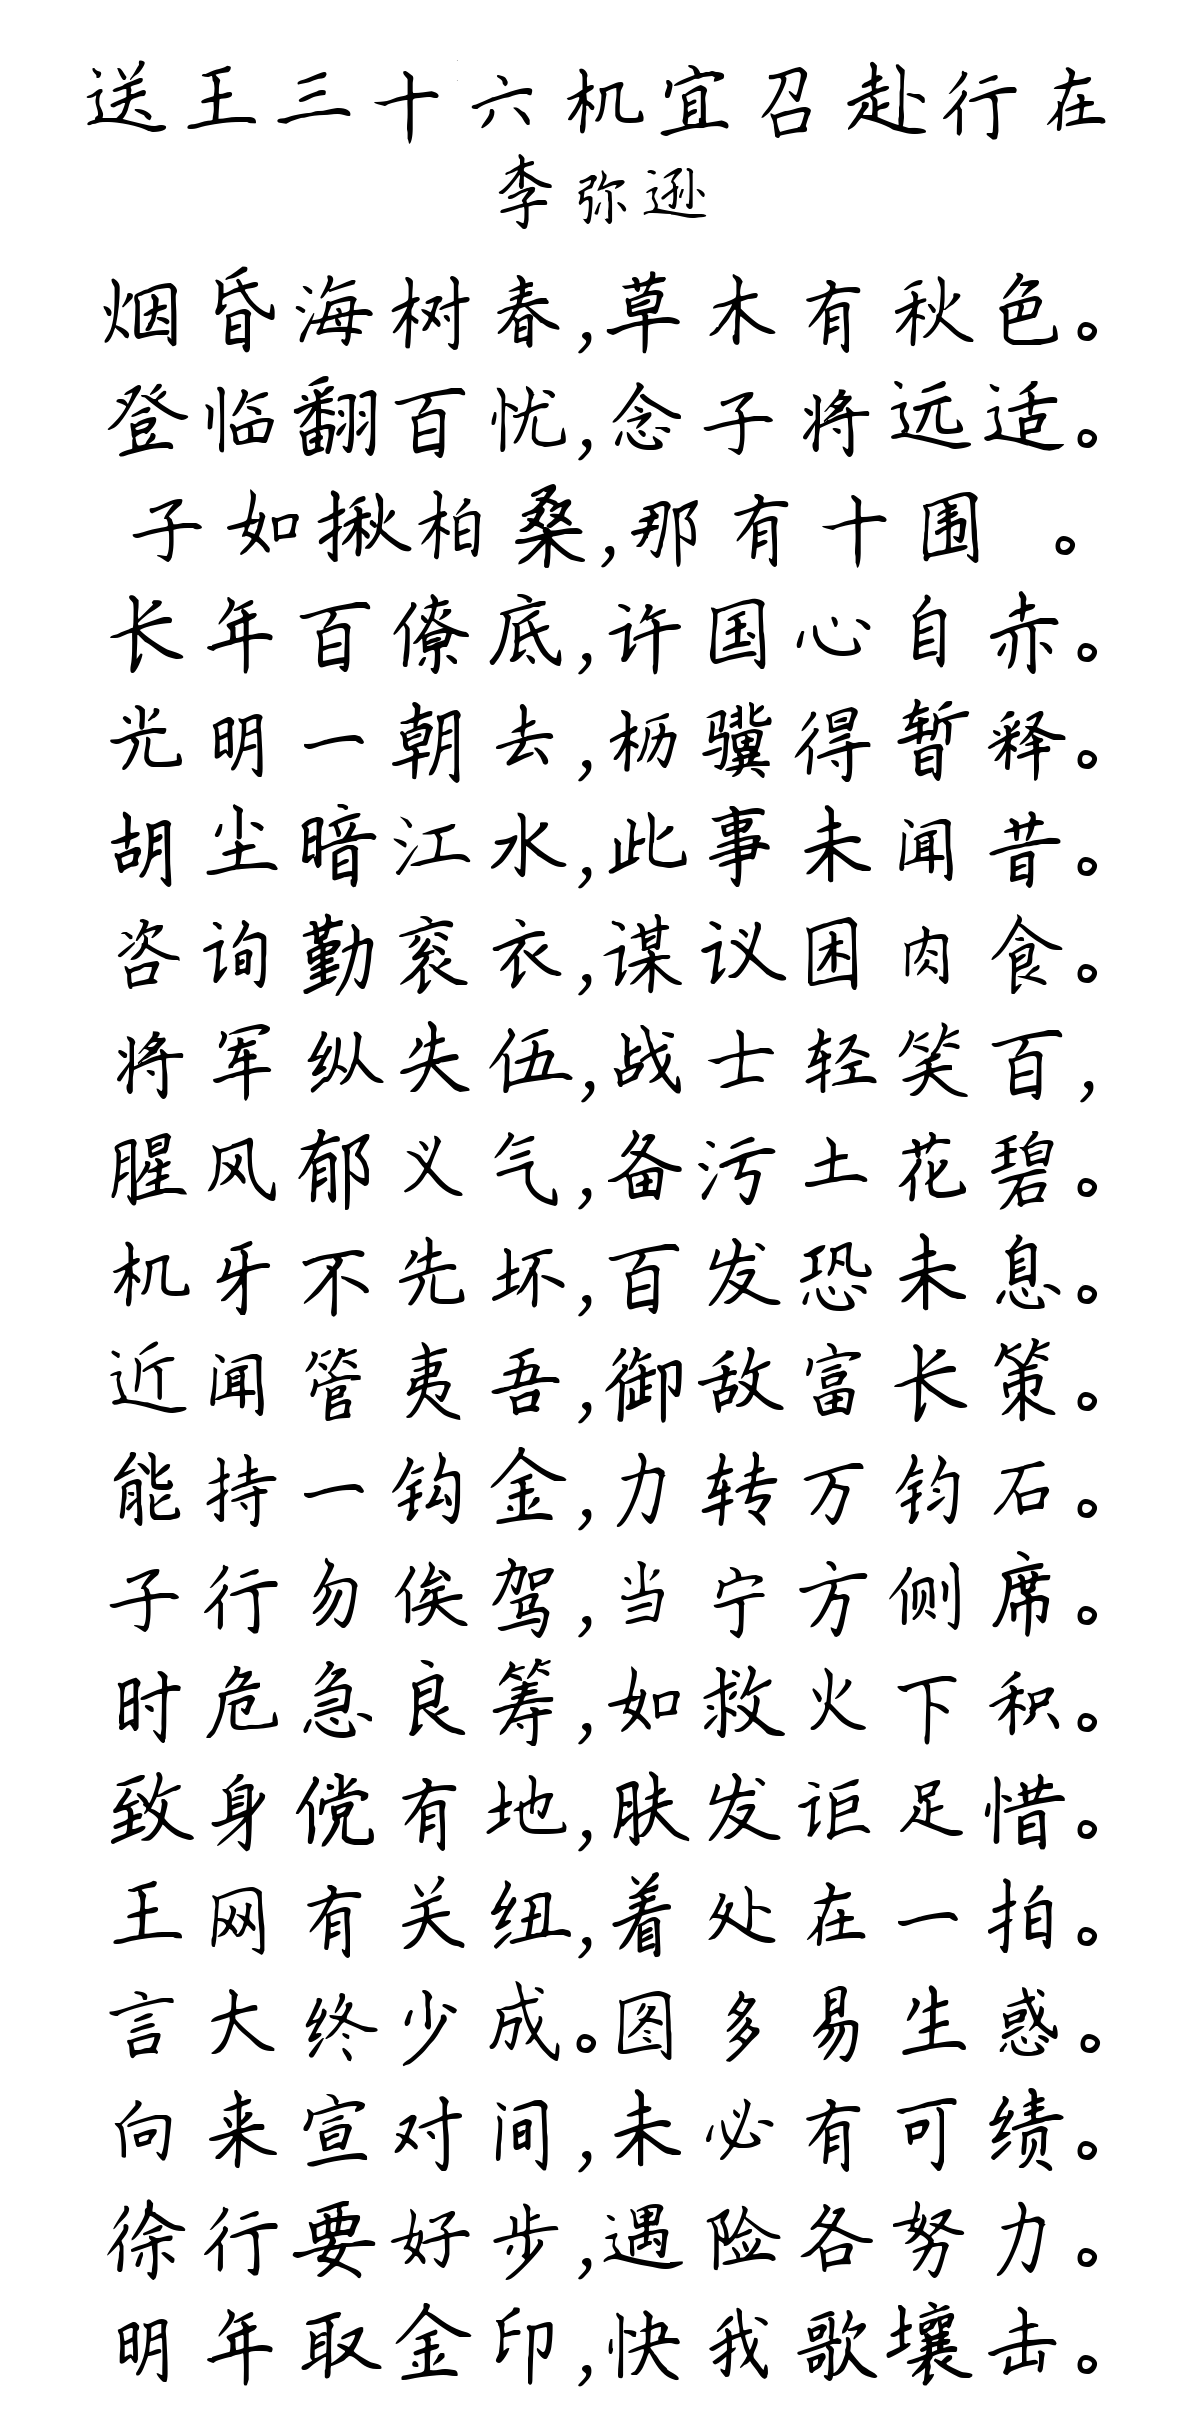 送王三十六机宜召赴行在
李弥逊
烟昏海树春,草木有秋色。
登临翻百忧,念子将远适。
子如揪柏桑,那有十围 。
长年百僚底,许国心自赤。
光明一朝去,枥骥得暂释。
胡尘暗江水,此事未闻昔。
咨询勤衮衣,谋议困肉食。
将军纵失伍,战士轻笑百,
腥风郁义气,备污土花碧。
机牙不先坏,百发恐未息。
近闻管夷吾,御敌富长策。
能持一钩金,力转万钧石。
子行勿俟驾,当宁方侧席。
时危急良筹,如救火下积。
致身傥有地,肤发讵足惜。
王网有关纽,着处在一拍。
言大终少成。图多易生惑。
向来宣对间,未必有可绩。
徐行要好步,遇险各努力。
明年取金印,快我歌壤击。